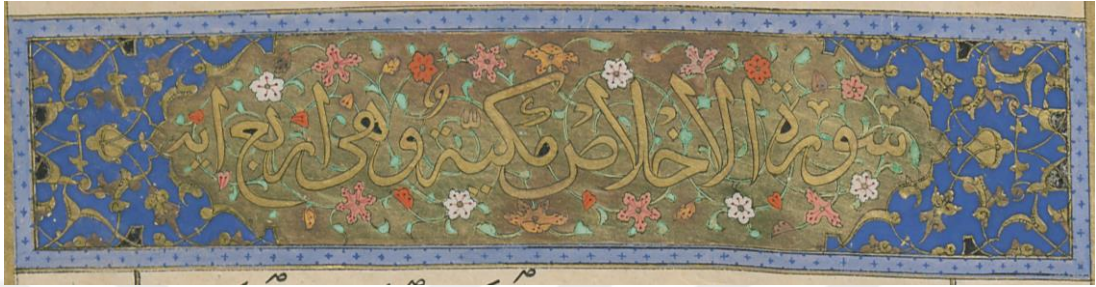 سورة الاخلاص مكية وهى اربع ايه